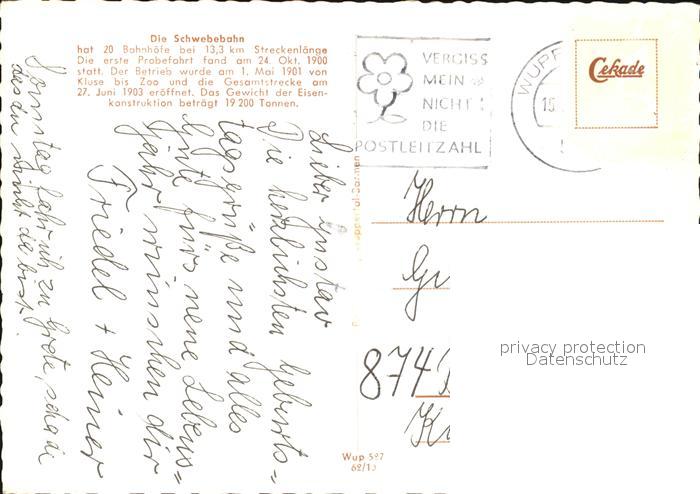 Die Schwebebahn
hat 20 Bahnhöfe bei 13,3 km Streckenlänge
Die erste Probefahrt fand am 24. Okt. 1900
statt. Der Betrieb wurde am 1. Mai 1901 von
Kluse bis Zoo und die Gesamtstrecke am
27. Juni 1903 eröffnet. Das Gewicht der Eisen-
konstruktion beträgt 19 200 Tonnen.
VERGISS
MEIN
NICHT !
DIE
POSTLEITZAHL
WUPP
15.
Cekade
Lieber Gustav
Die herzlichsten Geburts=
tagsgrüße und alles
Gute fürs neue Lebens=
jahr wünschen dir
Friedel + Heiner
Sonntag fahr ich zu Grete, schade
das du nicht da bist.
Wuppertal-Barmen
Herrn
Gu
874
privacy protection
Datenschutz
Wup 527
62/15